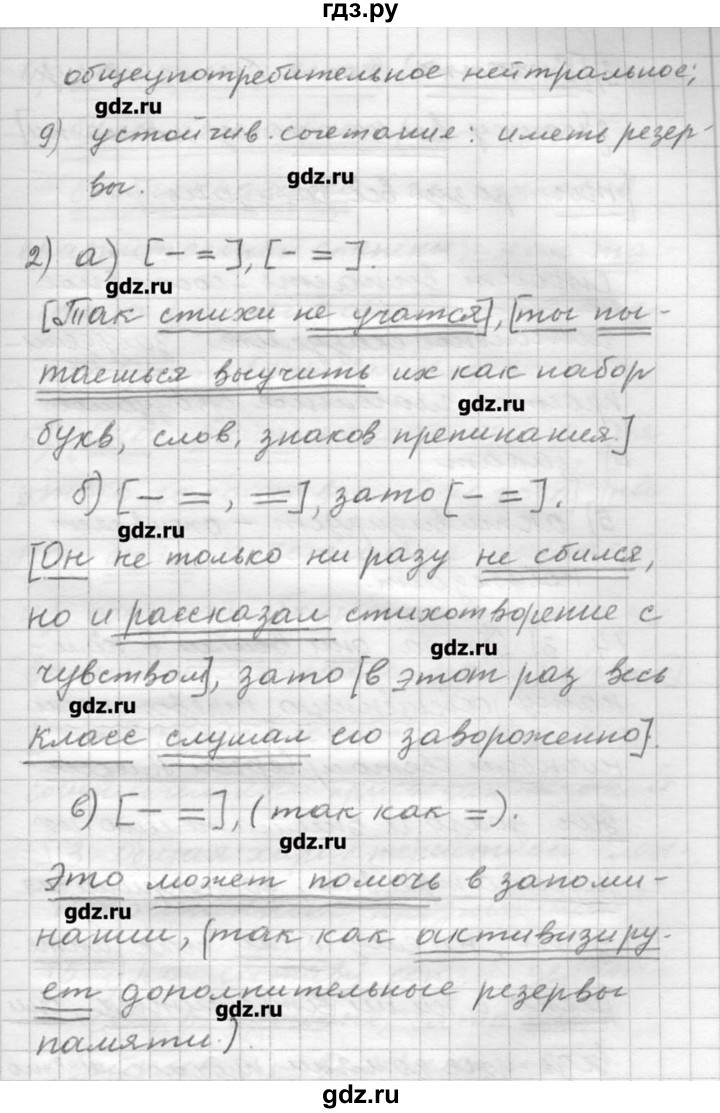 гдз.ру
общеупотребительное нейтральное;
gdz.ru
9) устойчив. сочетание: иметь резер-
gdz.ru
вы.
2) а) [– =], [– =].
gdz.ru
[Так стихи не учатся], [ты пы-
таешься выучить их как набор
gdz.ru
букв, слов, знаков препинания.]
б) [– =, =], зато [– =].
gdz.ru
[Он не только ни разу не сбился,
но и рассказал стихотворение с
gdz.ru
чувством], зато [в этот раз весь
gdz.ru
класс слушал его завороженно].
в) [– =], (так как =).
gdz.ru
Это может помочь в запоми-
gdz.ru
нании, (так как активизиру-
ет дополнительные резервы
gdz.ru
памяти.)
gdz.ru